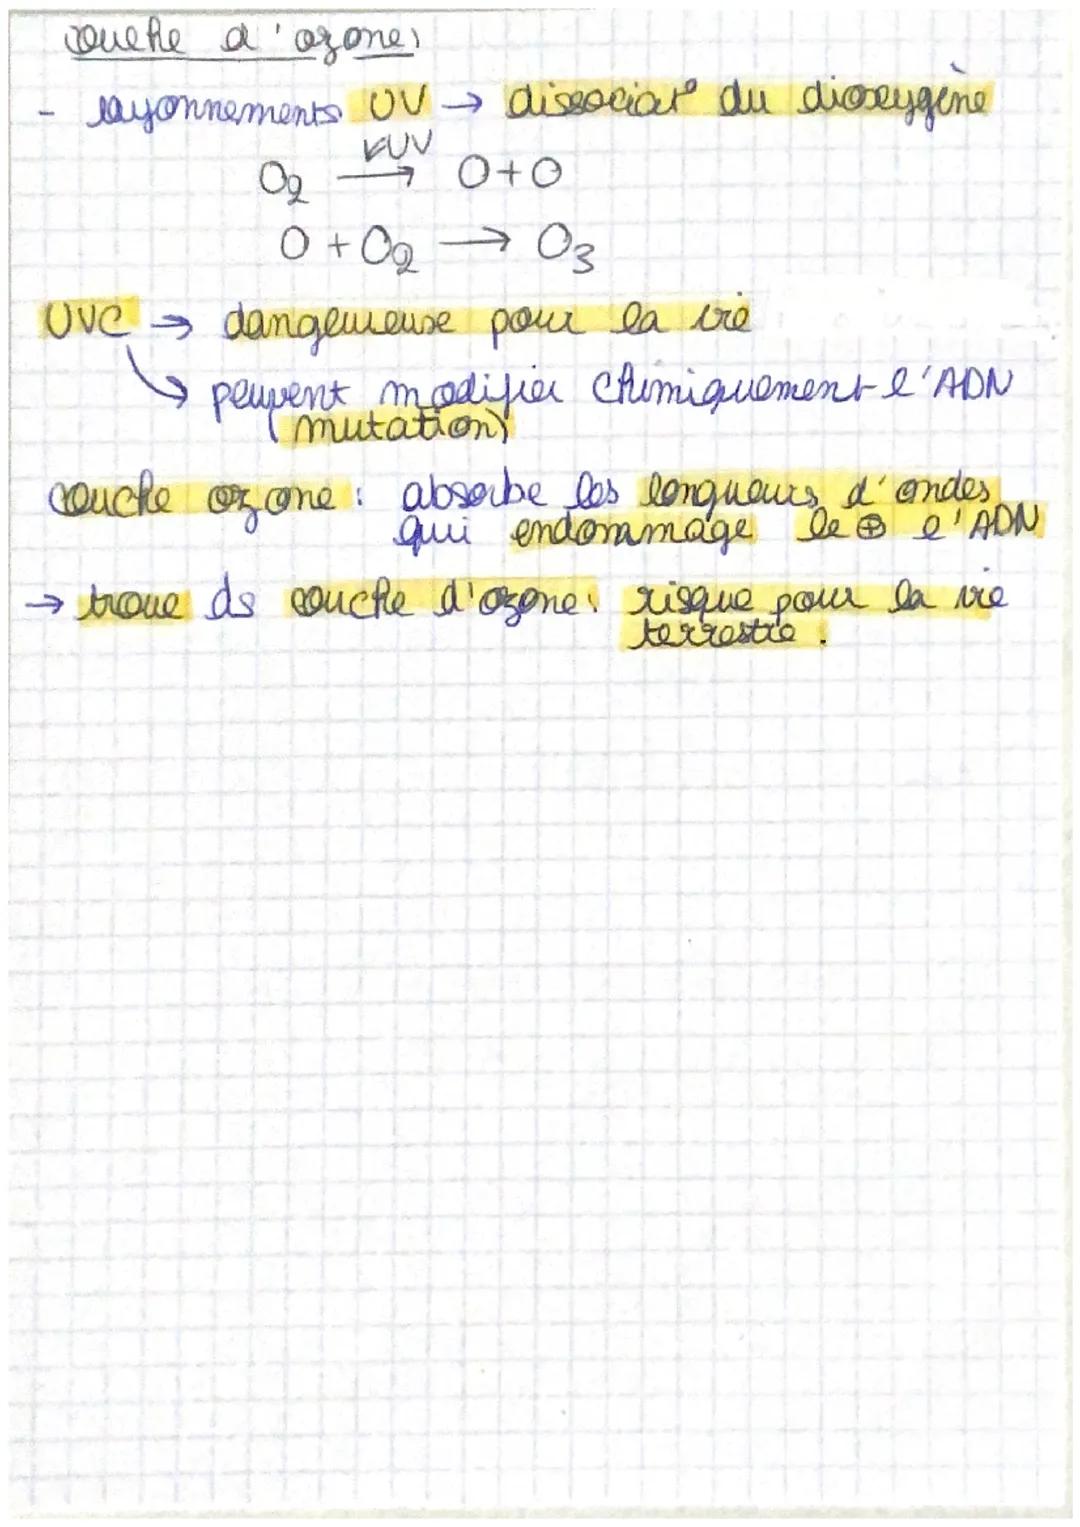 couche d'ozone:
- rayonnements UV → dissociat° du dioxygène
UV
O2 → O+O
O + O2 → O3
UVC → dangeureuse pour la vie
↳ peuvent modifier chimiquement l'ADN
(mutation)
couche ozone : absorbe les longueurs d'ondes
qui endommage le ⊕ l'ADN
→ troue ds couche d'ozone: risque pour la vie
terrestre.